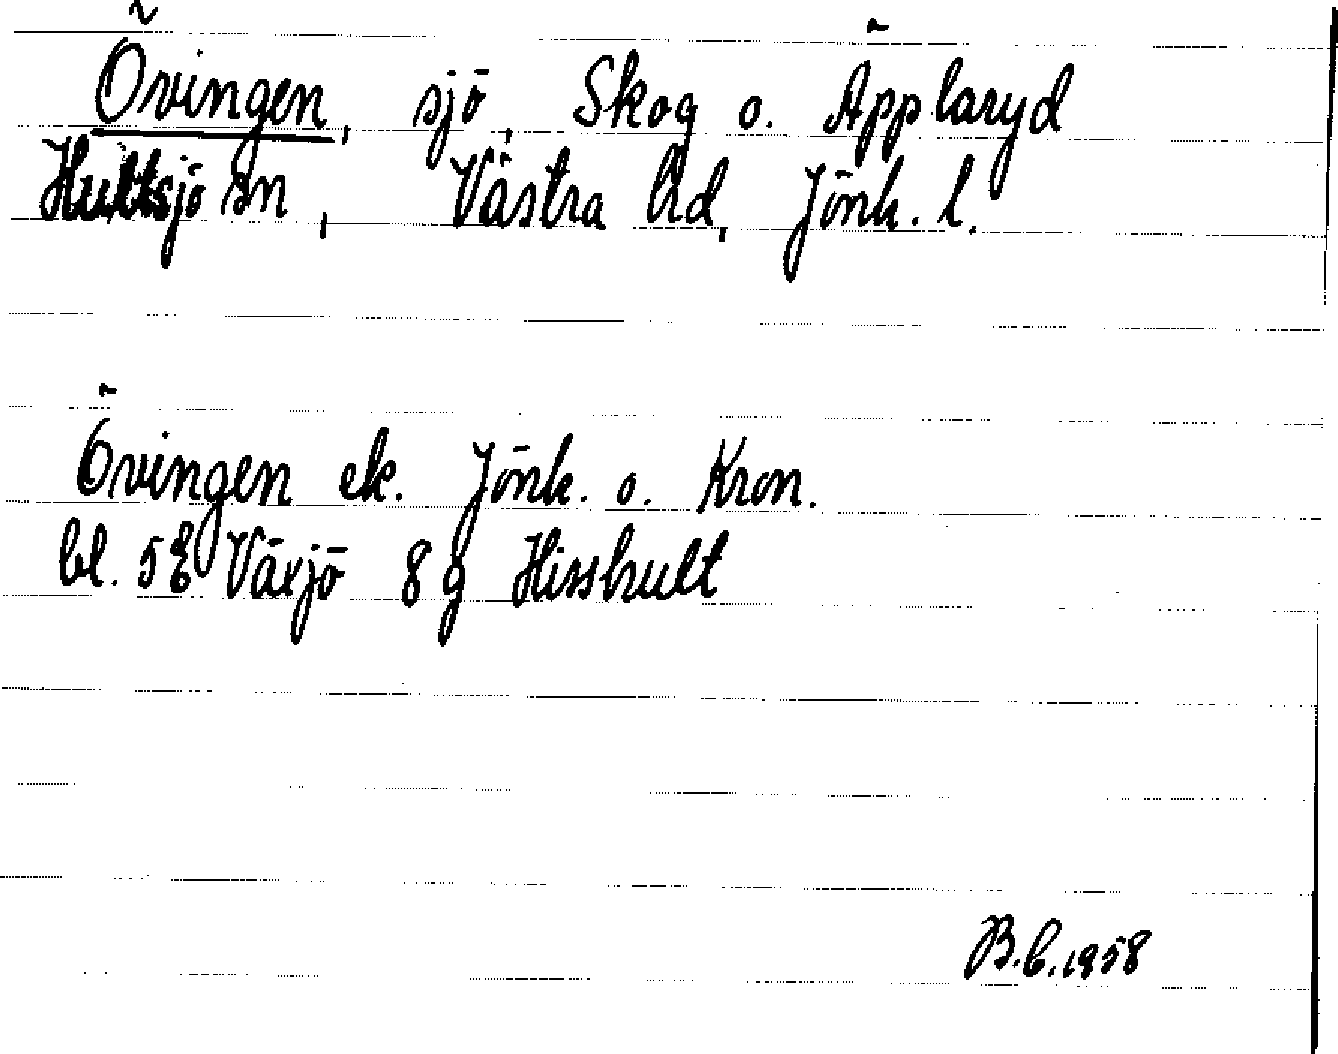 Övingen, sjö, Skog o. Äpplaryd
Hultsjö sn, Västra hd, Jönk. l.
Övingen ek. Jönk. o. Kron.
bl. 5E Växjö 8 g Hisshult
B.E. 1958